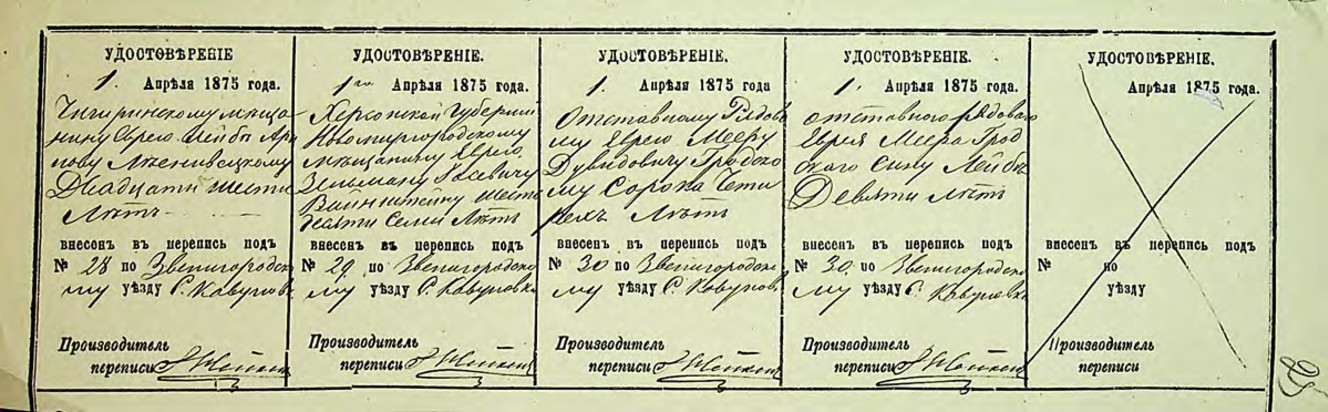 УДОСТОВѢРЕНІЕ
1. Апрѣля 1875 года.
Чигиринскому мѣща-
нину Еврею Лейбѣ Аро-
нову
Двадцати шести
Лѣтъ
внесенъ въ перепись подъ
№ 28 по Звенигородско-
му уѣзду С. Кавуновк
Производитель
переписи
УДОСТОВѢРЕНІЕ.
1го Апрѣля 1875 года.
Херсонской Губерніи
Новомиргородскому
мѣщанину Еврею
Зельману
Вайнштейну шесть
десяти семи Лѣтъ
внесенъ въ перепись подъ
№ 29 по Звенигородско-
му уѣзду С. Кавуновк
Производитель
переписи
УДОСТОВѢРЕНІЕ.
1. Апрѣля 1875 года
Отставному Рядово
му Еврею Мееру
Дувидовичу Гродско
му Сорока Четы
рехъ Лѣтъ
внесенъ въ перепись подъ
№ 30 по Звенигородско
му уѣзду С. Кавуновк
Производитель
переписи
УДОСТОВѢРЕНІЕ.
1. Апрѣля 1875 года.
отставного рядового
Еврея Меера Грод
ского Сыну Лейбѣ
Девяти Лѣтъ
внесенъ въ перепись подъ
№ 30. по Звенигородско
му уѣзду С. Кавуновк
Производитель
переписи
УДОСТОВѢРЕНІЕ.
Апрѣля 1875 года.
внесенъ въ перепись подъ
№ по
уѣзду
Производитель
переписи